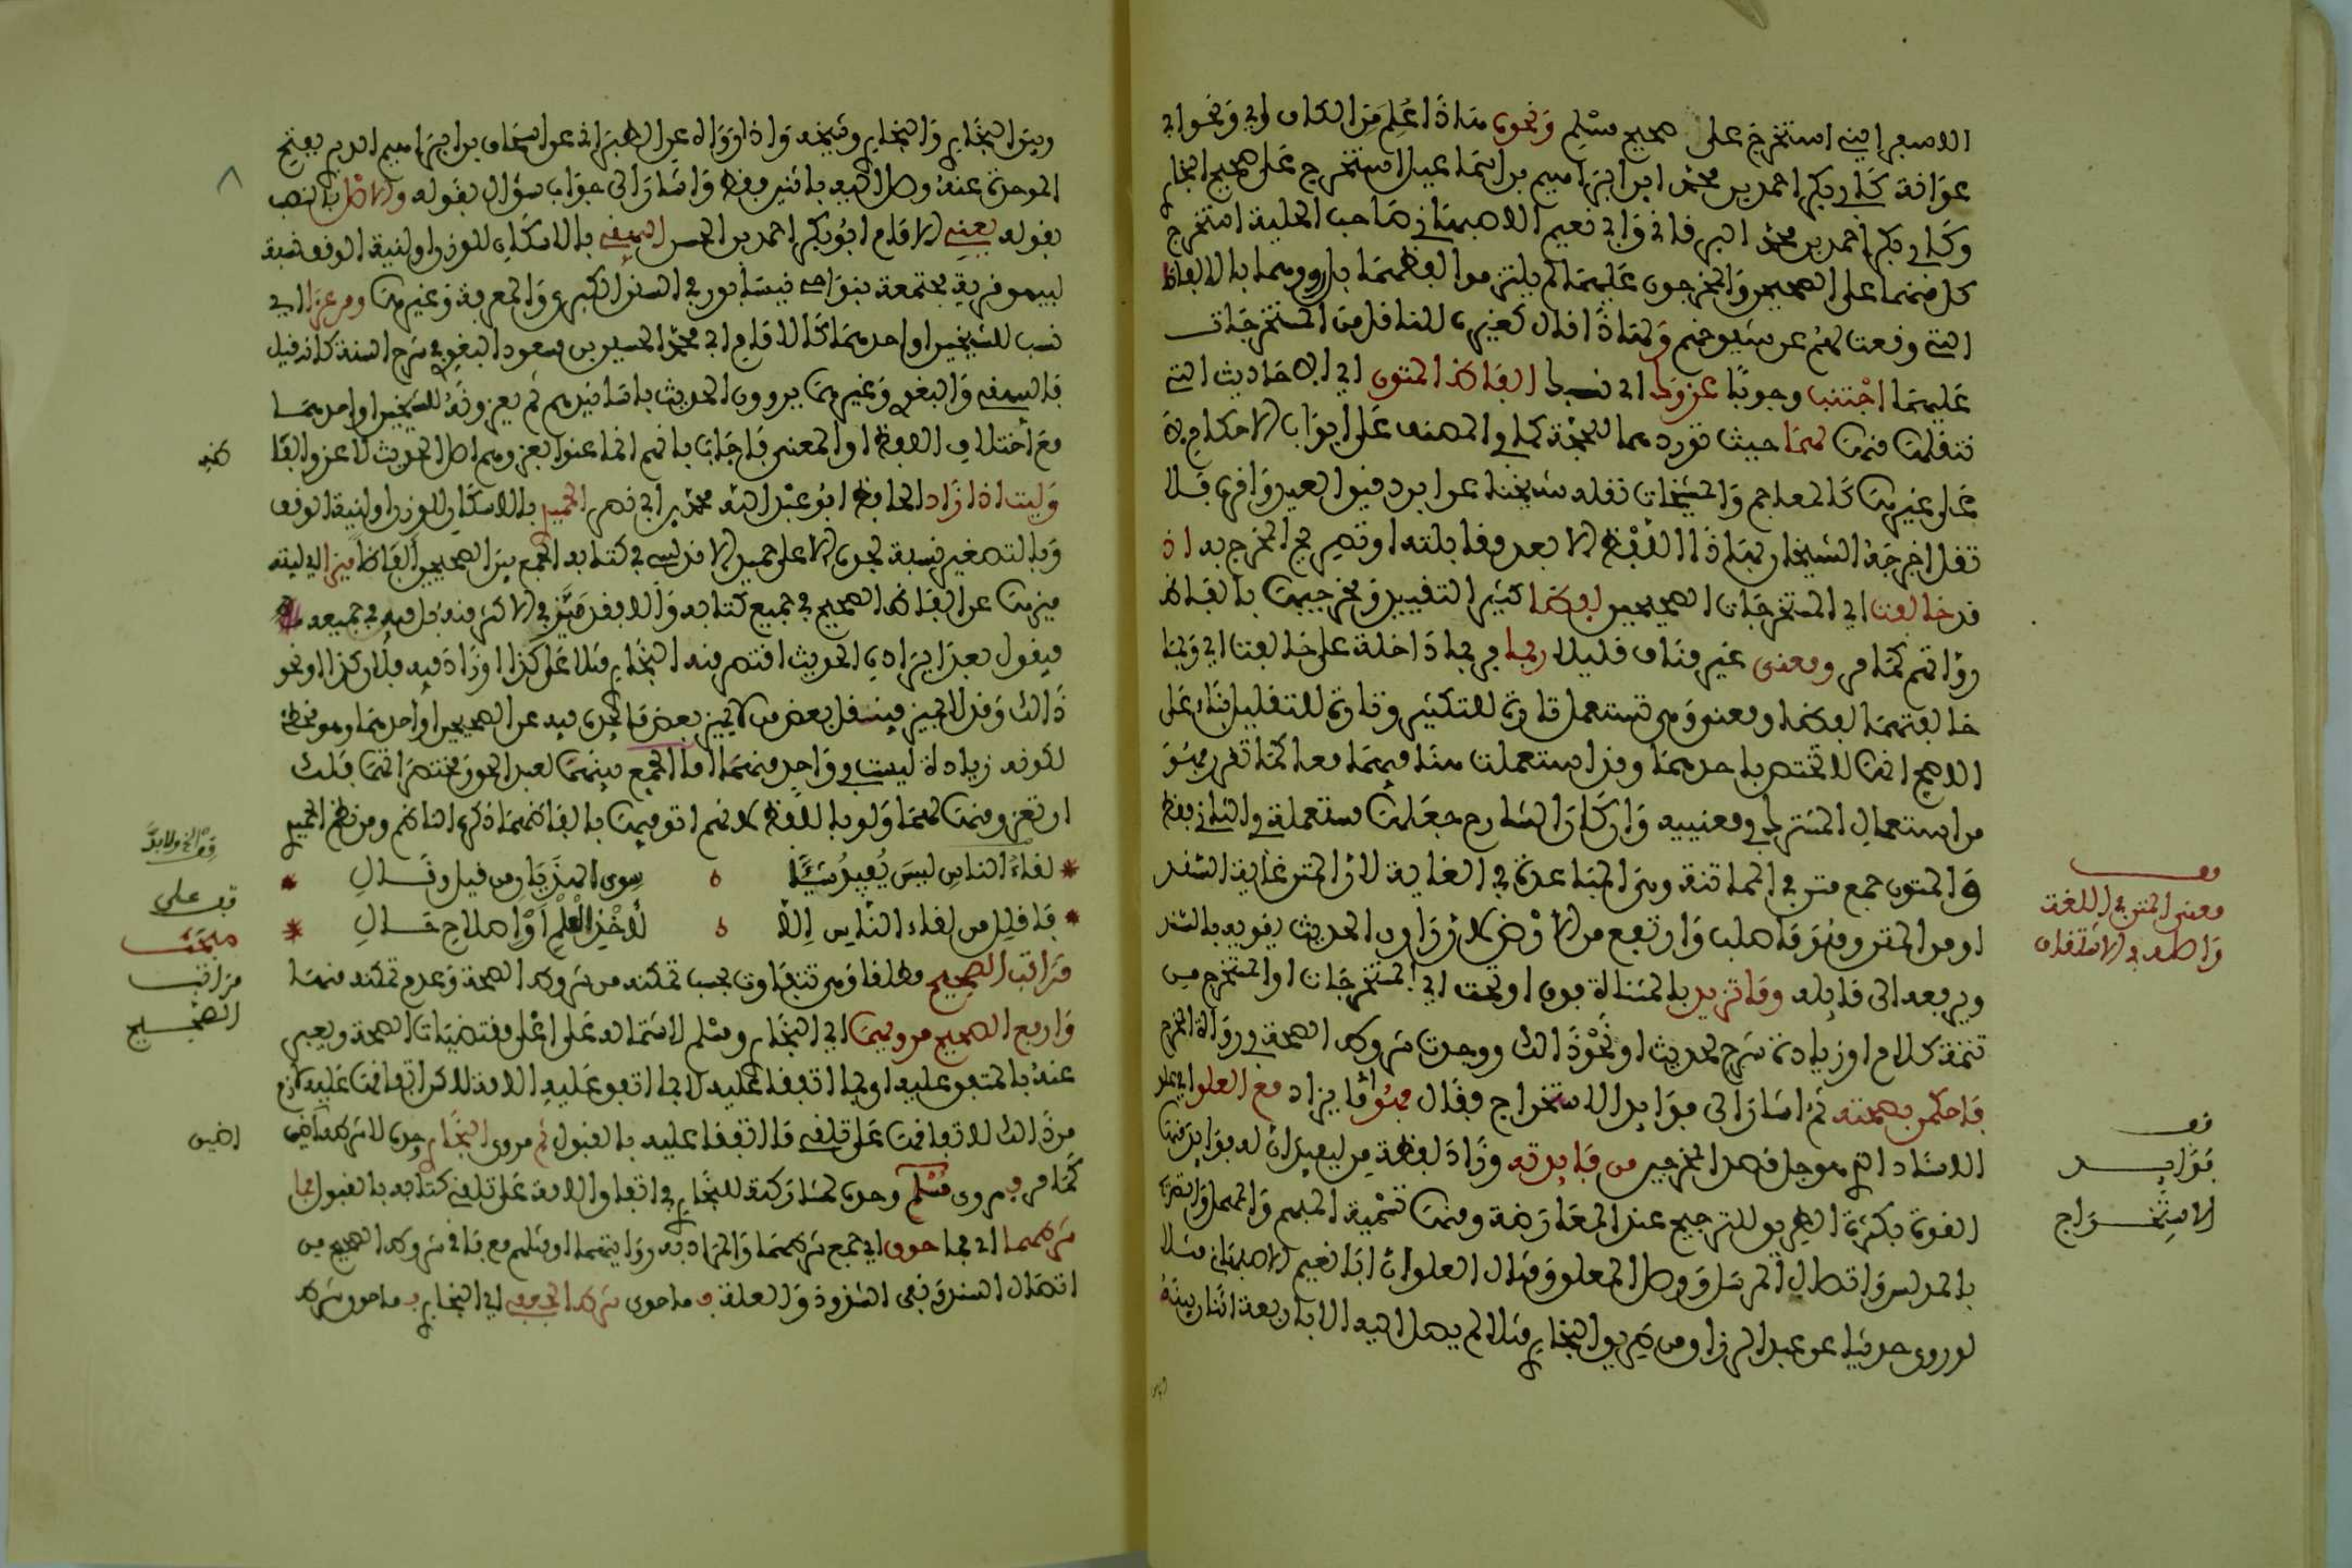 الاسفرايني استخرج على صحيح مسلم ونحوه هنا ذا اعلم من الكاف اي ونحو ابي
عوانة كابي بكر احمد بن محمد ابن ابراهيم بن اسماعيل استخرج على صحيح البخاري
وكابي بكر احمد بن محمد البرقاني وابي نعيم الاصبهاني صاحب الحلية استخرج
كل منهما على الصحيحين والمخرجون عليهما لم يلتزموا لفظهما بل رووهما بالالفاظ
التي وقعت لهم عن شيوخهم ولهذا قال كغيره للناقل من المستخرجات
عليهما اجتنب وجوبا عزوك اي نسبك الفاظ المتون اي الاحاديث التي
تنقلها منها لهما حيث تورده للحجة كما في المصنف على ابواب الاحكام لا
على غيرها كالمعاجم والمشيخات نقله شيخنا عن ابن دقيق العيد واقره فلا
تقل اخرجه الشيخان بهذا اللفظ الا بعد مقابلته او تصريح المخرج به اذ
قد خالفت اي المستخرجات الصحيحين لفظا كثيرا لتقييد مخرجيها بالفاظ
رواتهم كما مر ومعنى غير مناف قليلا ربما فربما داخلة على خالفت اي وربما
خالفتهما لفظا ومعنى وهي تستعمل تارة للتكثير وتارة للتقليل بناء على
الاصح انها لا تختص باحدهما وقد استعملت هنا فيهما معا كما تقرر فهو
من استعمال المشترك في معنييه وان كان الشارح جعلها مستعملة في الثاني فقط
والمتون جمع متن في المماتنة وهي المباعدة في الغاية لان المتن غاية السند
او من المتن وهو ما صلب وارتفع من الارض لان راوي الحديث يقويه بالسند
ويرفعه الى قائله وما تزيد بالمثناة فوق او تحت اي المستخرجات او المستخرج من
تتمة كلام او زيادة شرح لحديث او نحو ذالك ووجدت شروط الصحة في رواة المخرج
فاحكمن بصحته ثم اشار الى فوايد الاستخراج فقال فهو ما يزاد مع العلو اي علو
الاسناد الذي هو جل قصد المخرجين من فايدته وزاد لفظة من ليفيد ان له فوايد منها
القوة بكثرة الطرق للترجيح عند المعارضة ومنها تسمية المبهم والمهمل والتصريح
بالمدلس واتصال المرسل ووصل المعلق ومثال العلو ان ابا نعيم الاصبهاني مثلا
لو روى حديثا عن عبد الرزاق من طريق البخاري مثلا لم يصل اليه الا باربعة اثنان بينه
معنى المتن في اللغة
واصله في الاشتقاق
قف
فوايد
الاستخراج
وبين البخاري والبخاري وشيخه واذا رواه عن الطبراني عن اسحاق بن ابراهيم الدبري بفتح
الموحدة عنه وصل اليه باثنين فقط واشار الى جواب سؤال بقوله والاصل بالنصب
بقوله يعني الامام ابو بكر احمد بن الحسين البيهقي بالاسكان للوزن او لنية الوقف نسبة
لبيهق قرية مجتمعة بنواحي نيسابور في السنن الكبرى والمعرفة وغيرها ومن عزا اي
نسب للشيخين او احدهما كالامام ابي محمد الحسين بن مسعود البغوي في شرح السنة كانه قيل
فالبيهقي والبغوي وغيرهما يروون الحديث باسانيدهم ثم يعزونه للشيخين او احدهما
مع اختلاف اللفظ او المعنى فاجاب بانهم انما عنوا بعزوهم اصل الحديث لا عزو الفاظه
وليت اذ زاد الحافظ ابو عبد الله محمد بن ابي نصر الحميدي بالاسكان للوزن او لنية الوقف
وبالتصغير نسبة لجده الاعلى حميد الاندلسي في كتابه الجمع بين الصحيحين الفاظا ميزا اي ليته
ميزها عن الفاظ الصحيح في جميع كتابه والا فقد ميز في الاكثر منه بل قيل في جميعه
فيقول بعد ايراده الحديث اقتصر منه البخاري مثلا على كذا او زاد فيه فلان كذا او نحو
ذالك وقد لا يميز فينقل بعض من لا يميز بعض ما يجده فيه عن الصحيحين او احدهما وهو مخطئ
لكونه زيادة ليست في واحد منهما اما الجمع بينهما لعبد الحق ومختصراتهما فلك
ان تعزو منها لهما ولو باللفظ لانهم اتوا فيها بالفاظهما ذكره الناظم ومن نظم الحميدي
لقاء الناس ليس يفيد شيئا سوى الهذيان من قيل وقال
فاقلل من لقاء الناس الا لاخذ العلم او اصلاح حال
مراتب الصحيح مطلقا وهي تتفاوت بحسب تمكنه من شروط الصحة وعدم تمكنه منها
وارفع الصحيح مرويهما اي البخاري ومسلم لاشتماله على اعلى مقتضيات الصحة ويعبر
عنه بالمتفق عليه او بما اتفقا عليه لا بما اتفق عليه الامة لاكن اتفاقها عليه لازم
من ذالك لاتفاقها على تلقي ما اتفقا عليه بالقبول ثم مروى البخاري وحده لان شرطه اضيق
كما مر فمروى مسلم وحده لمشاركته للبخاري في اتفاق الامة على تلقي كتابه بالقبول فما
شرطهما اي فما حوى اي جمع شرطهما والمراد به رواتهما او مثلهم مع باقي شروط الصحيح من
اتصال السند ونفي الشذوذ والعلة فما حوى شرط الجعفي اي البخاري فما حوى شرط
قف على
مبحث
مراتب
الصحيح